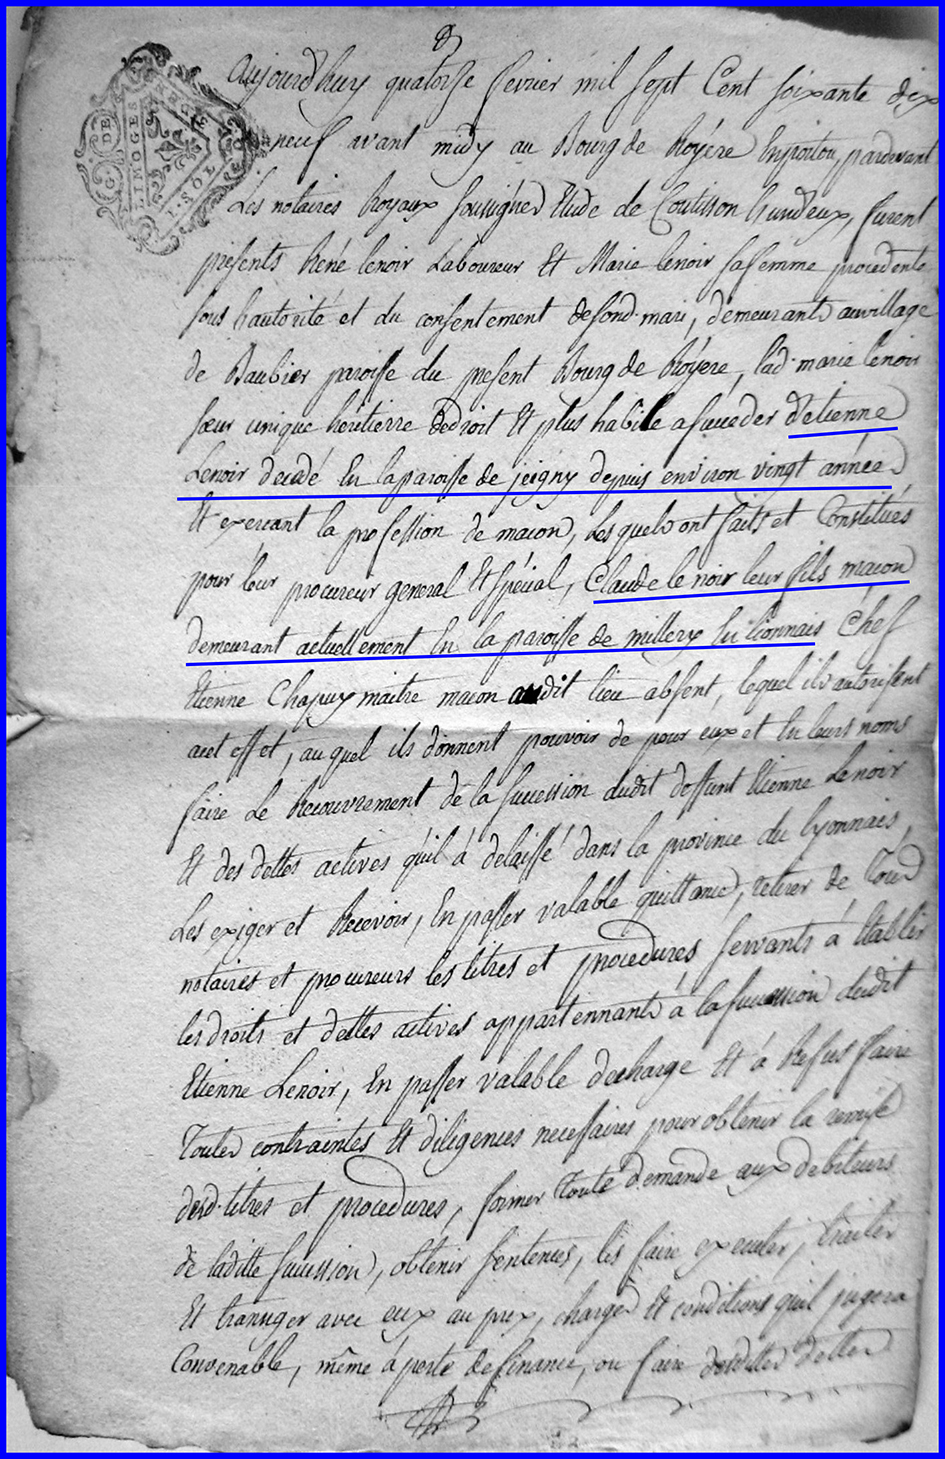 G. DE
LIMOGES
1. SOL
Aujourdhuy quatorse fevrier mil sept Cent soixante dix
neuf avant midy au Bourg de Royére En poitou, pardevant
Les notaires Royaux soussignés Etude de Coutisson L'un deux, furent
présents Réné lenoir Laboureur Et Marie lenoir sa femme procedente
sous l'autorité et du consentement desond. mari, demeurants au village
de Baubier paroisse du present Bourg de Royere, lad. marie lenoir
sœur unique heritierre dedroit Et plus habille a succeder d'etienne
Lenoir decedé En la paroisse de jeigny depuis environ vingt année
Et exercant la profession de macon, Lesquels ont faits et Constitués
pour leur procureur general Et spécial, Claude le noir leur fils macon
demeurant actuellement En la paroisse de millery En lionnais Chef
Etienne Chapuy maitre macon audit lieu absent, lequel ils autorisent
acet effet, auquel ils donnent pouvoir de pour eux et En leurs noms
faire Le Recouvrement de la succession dudit deffunt Etienne Lenoir
Et des dettes actives qu'il à delaissé dans la province du lyonnais,
Les exiger et Recevoir, En passer valable quittance, retirer de Tous
notaires et procureurs les titres et procedures servants à Etablir
les droits et dettes actives appartennants à la succession dudit
Etienne Lenoir, En passer valable decharge Et à Refus faire
Toutes contraintes Et diligences necessaires pour obtenir la remise
desd. titres et procedures, former Toute demande aux debiteurs
de laditte succession, obtenir sentences, les faire executer, traiter
Et transiger avec eux au prix, charges Et conditions qu'il jugera
Convenable, même à perte de finance, ou faire desdittes dettes